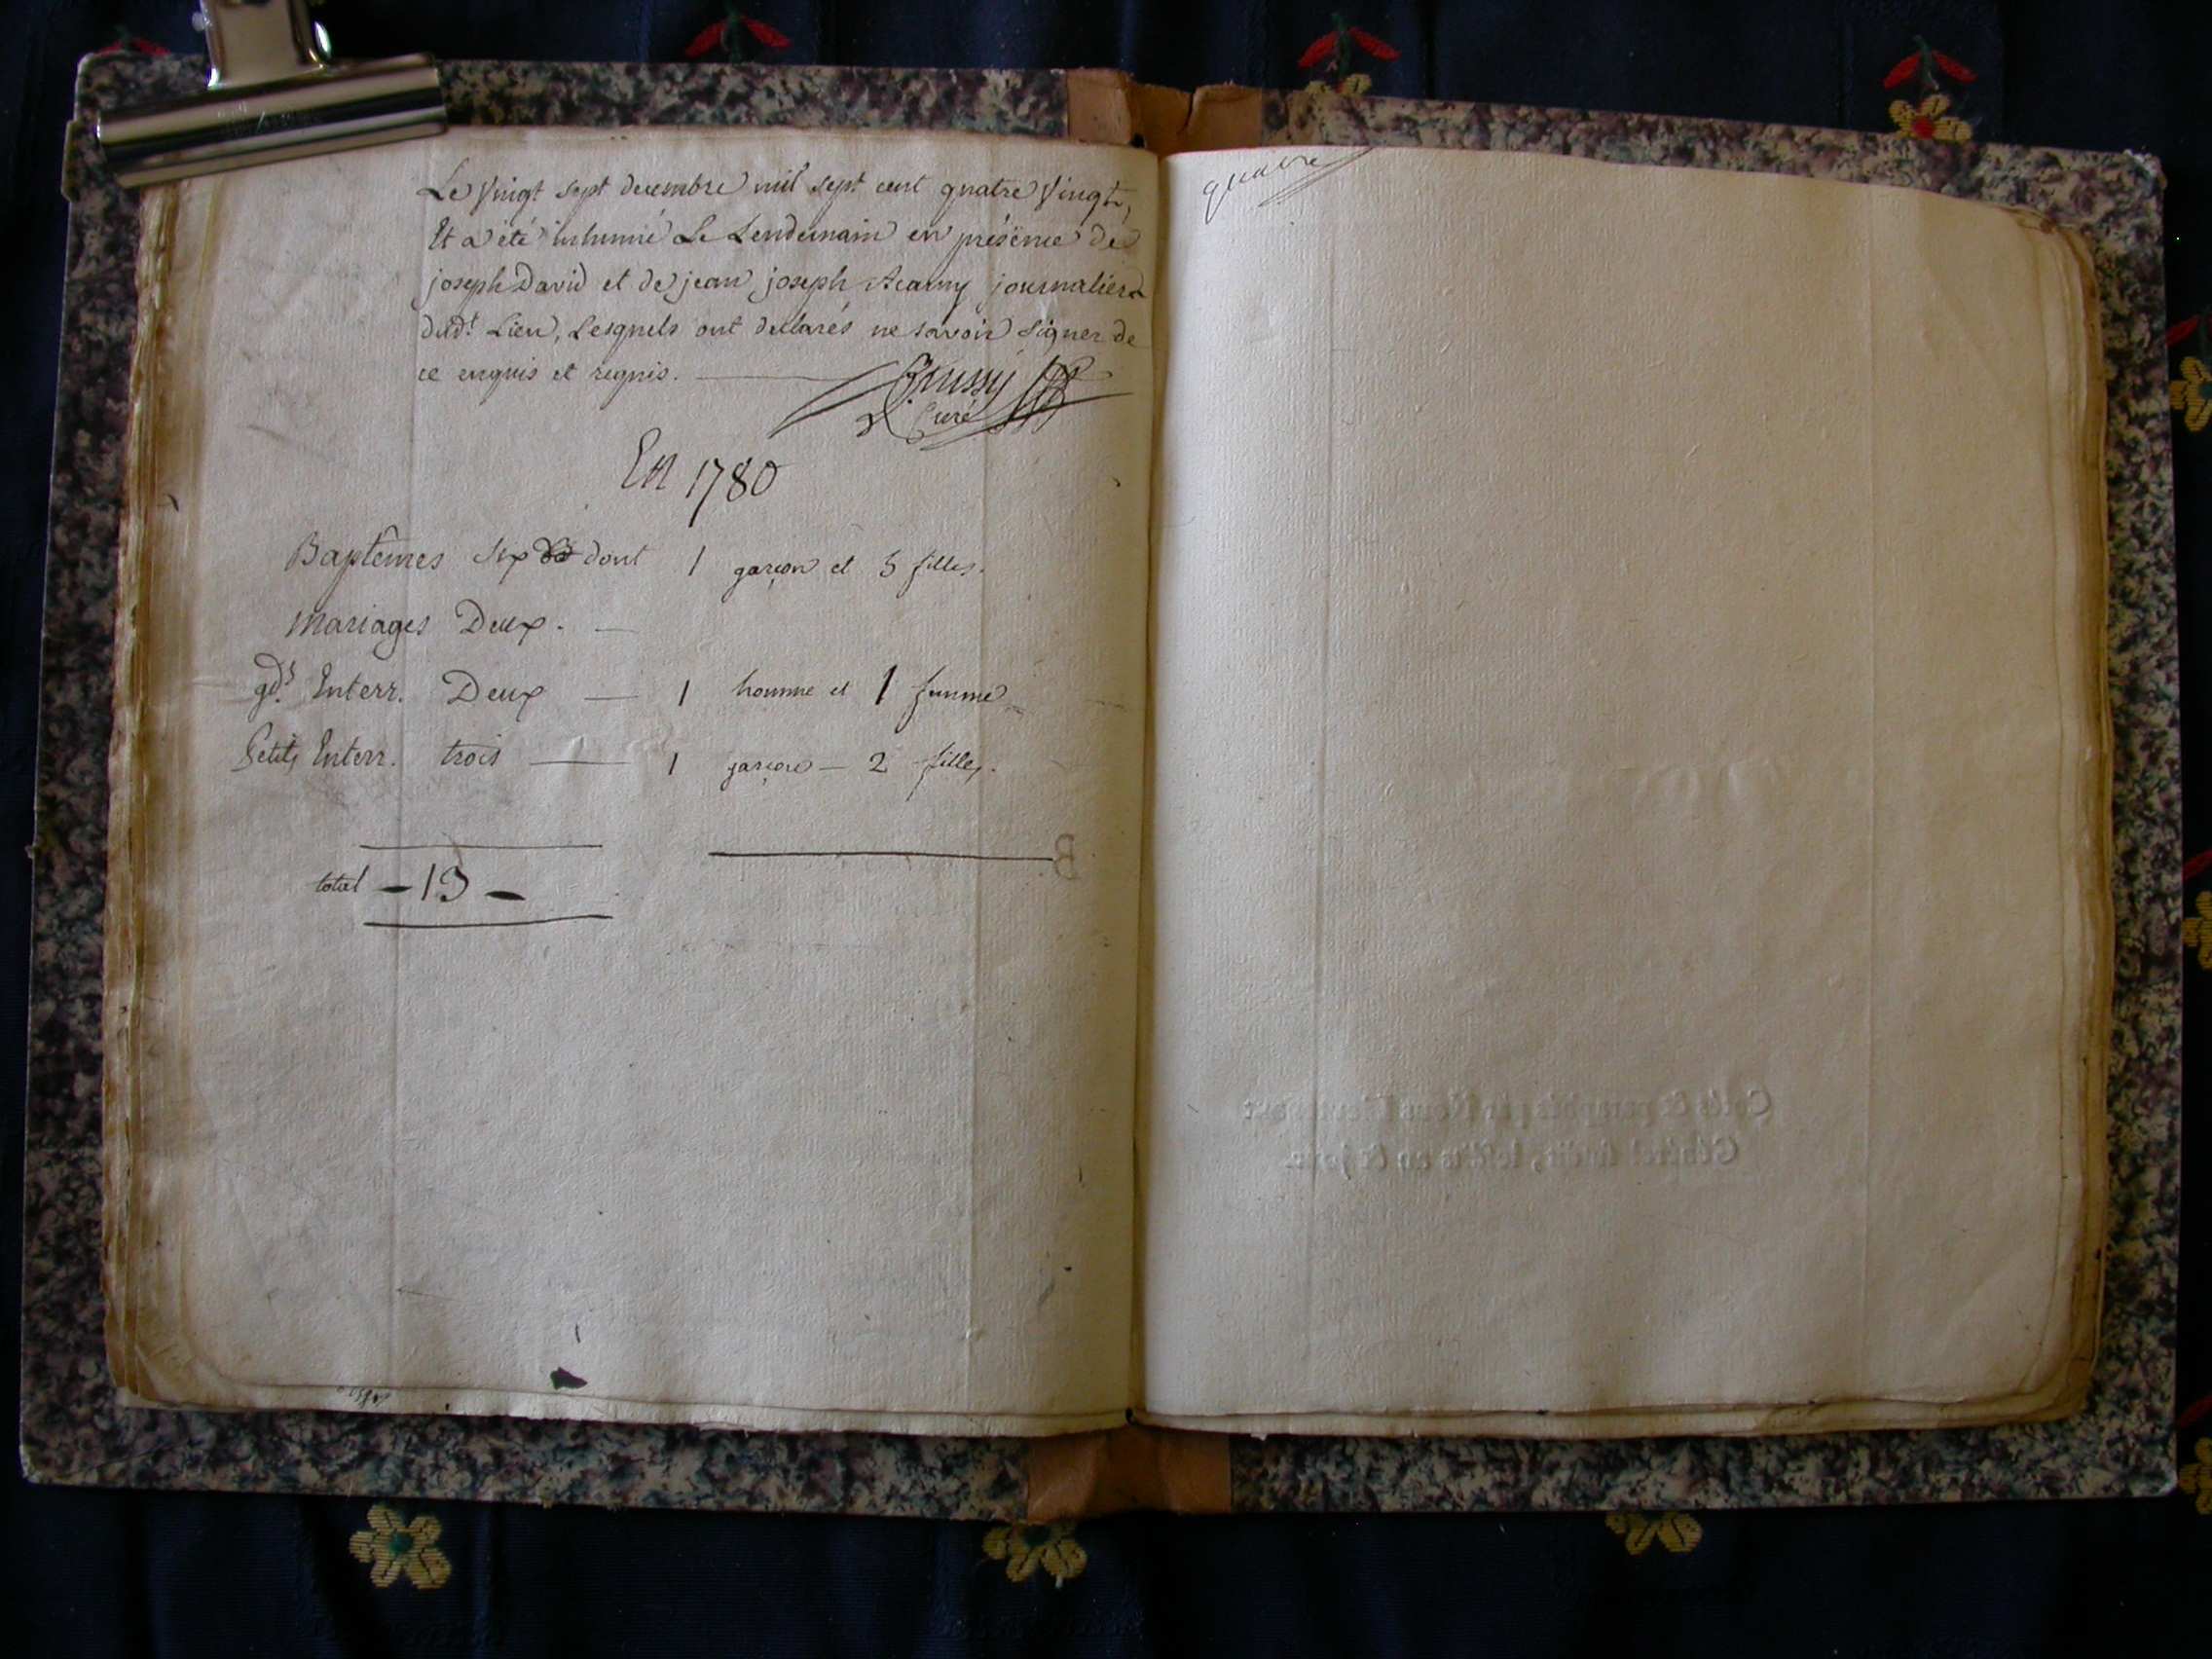 Le Vingt sept decembre mil sept cent quatre Vingt,
Et a été inhumé Le Lendemain en présence de
joseph David et de jean joseph Acarny journaliers
dud.t Lieu, Lesquels ont declarés ne savoir signer de
ce enquis et requis.
Brussy
Curé
En 1780
Baptêmes six dont 1 garçon et 5 filles.
Mariages Deux.
gds. Enterr. Deux — 1 homme et 1 femme
Petits Enterr. trois — 1 garçon — 2 filles.
total — 13 —
B.
quatre